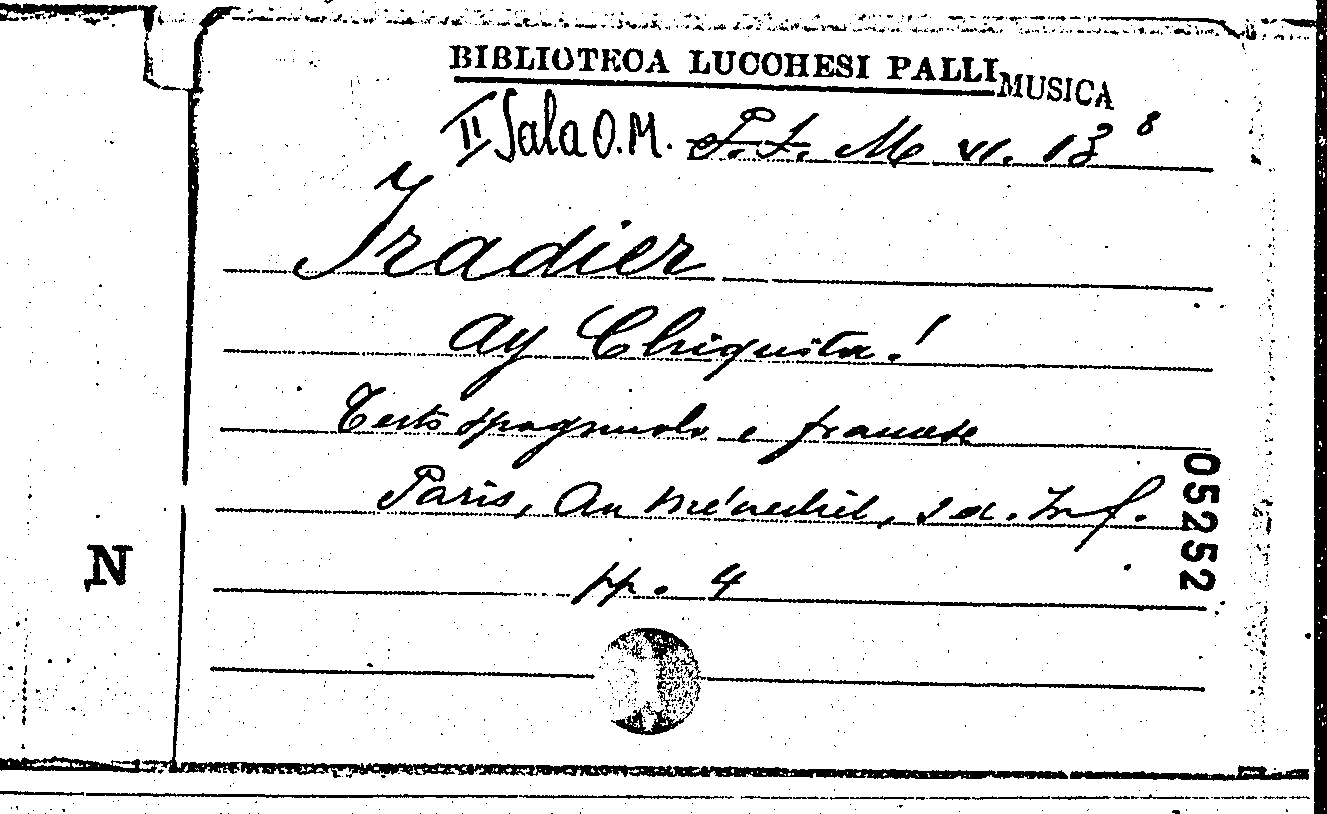 BIBLIOTECA LUCCHESI PALLI MUSICA
II Sala O.M. P.L. M VI. 13 8
Iradier
Ay Chiquita!
Testo spagnuolo e francese
Paris, Au Ménestrel, s.d. In f.
pp. 4
05252
N